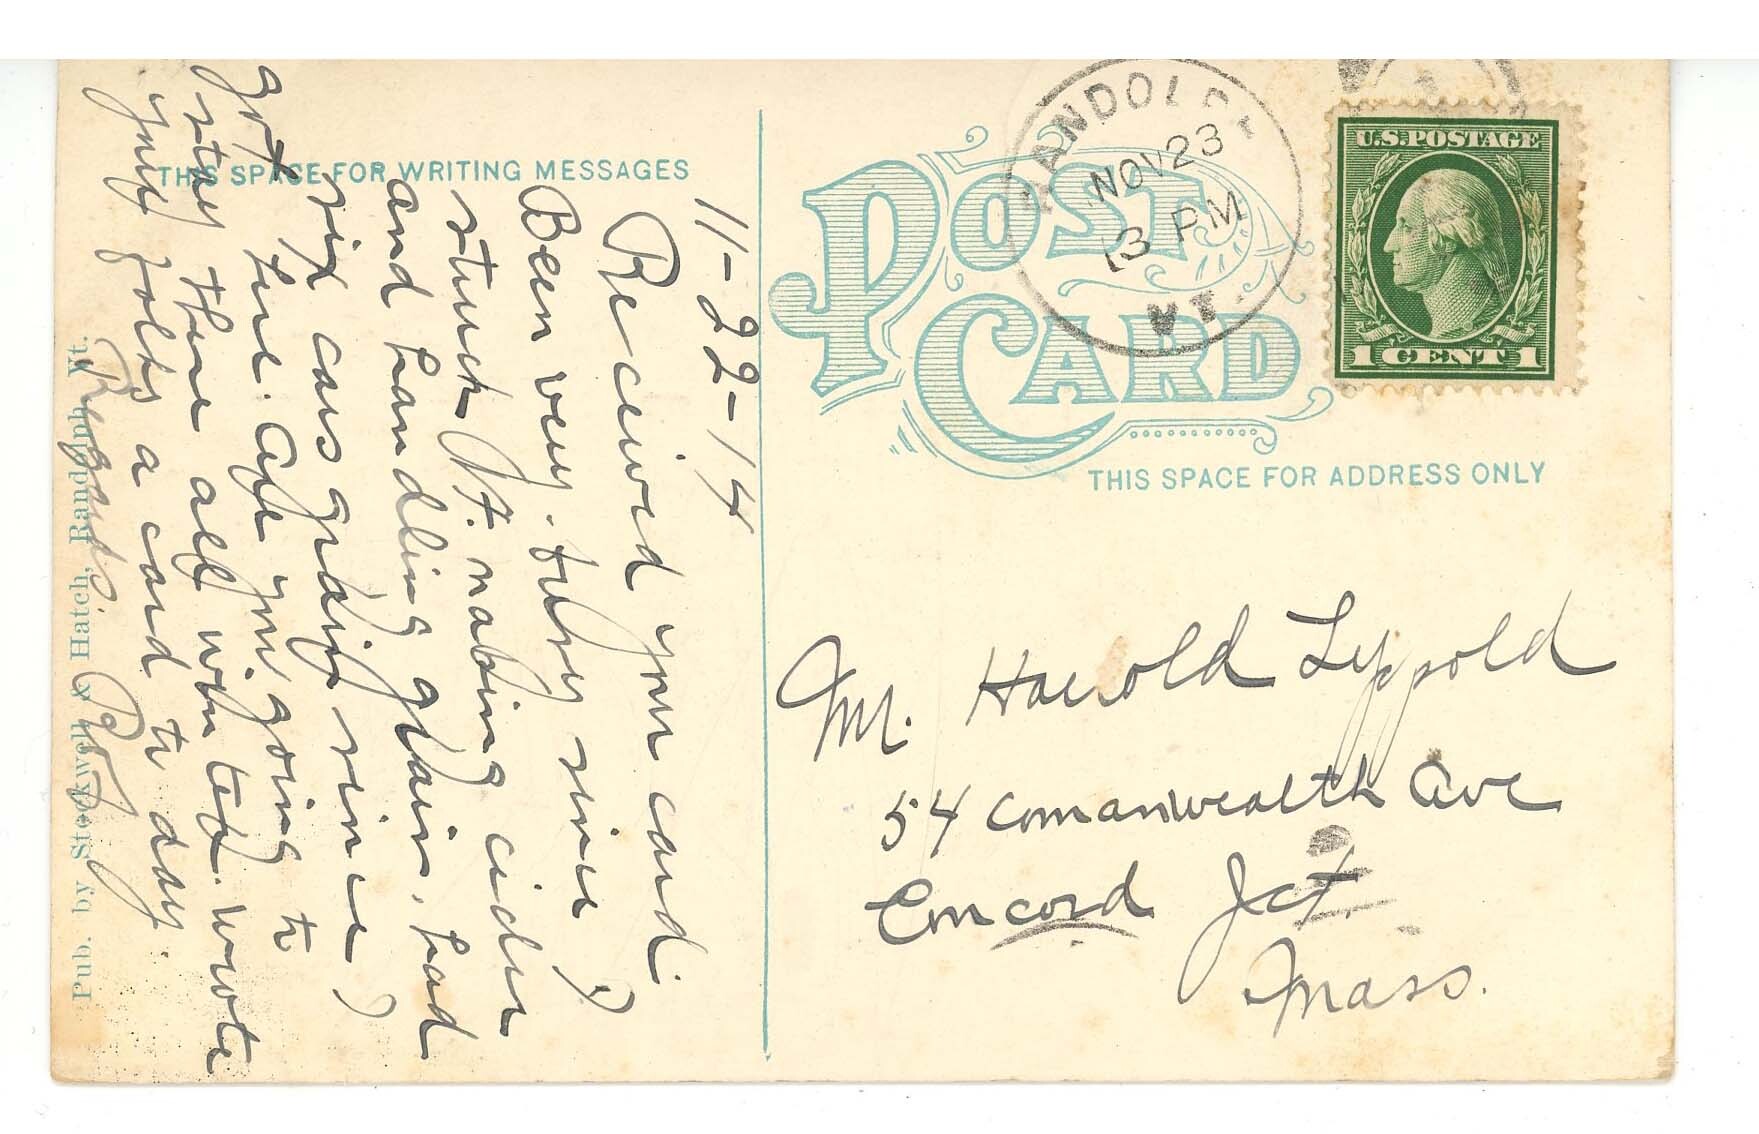 THIS SPACE FOR WRITING MESSAGES
11-22-14
Received your card.
Been very busy since I
struck Vt. making cider
and handling grain. had
six cars grain since I
got here. Are you going to
stay there all winter. wrote
your folks a card to day.
Regards. Ray
Pub. by Stockwell & Hatch, Randolph, Vt.
POST CARD
RANDOLPH
NOV 23
3 PM
VT.
U.S. POSTAGE
1 CENT 1
THIS SPACE FOR ADDRESS ONLY
Mr. Harold Leppold
54 Comanwealth Ave
Concord Jct.
Mass.